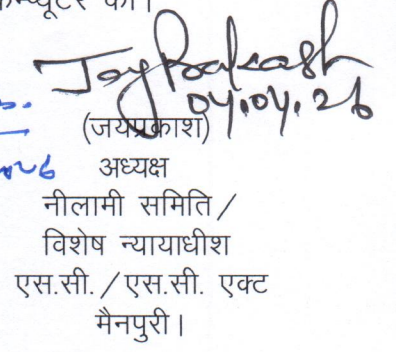 कम्प्यूटर की।
Jay Prakash
04.04.26
(जयप्रकाश)
अध्यक्ष
नीलामी समिति /
विशेष न्यायाधीश
एस.सी. / एस.सी. एक्ट
मैनपुरी।